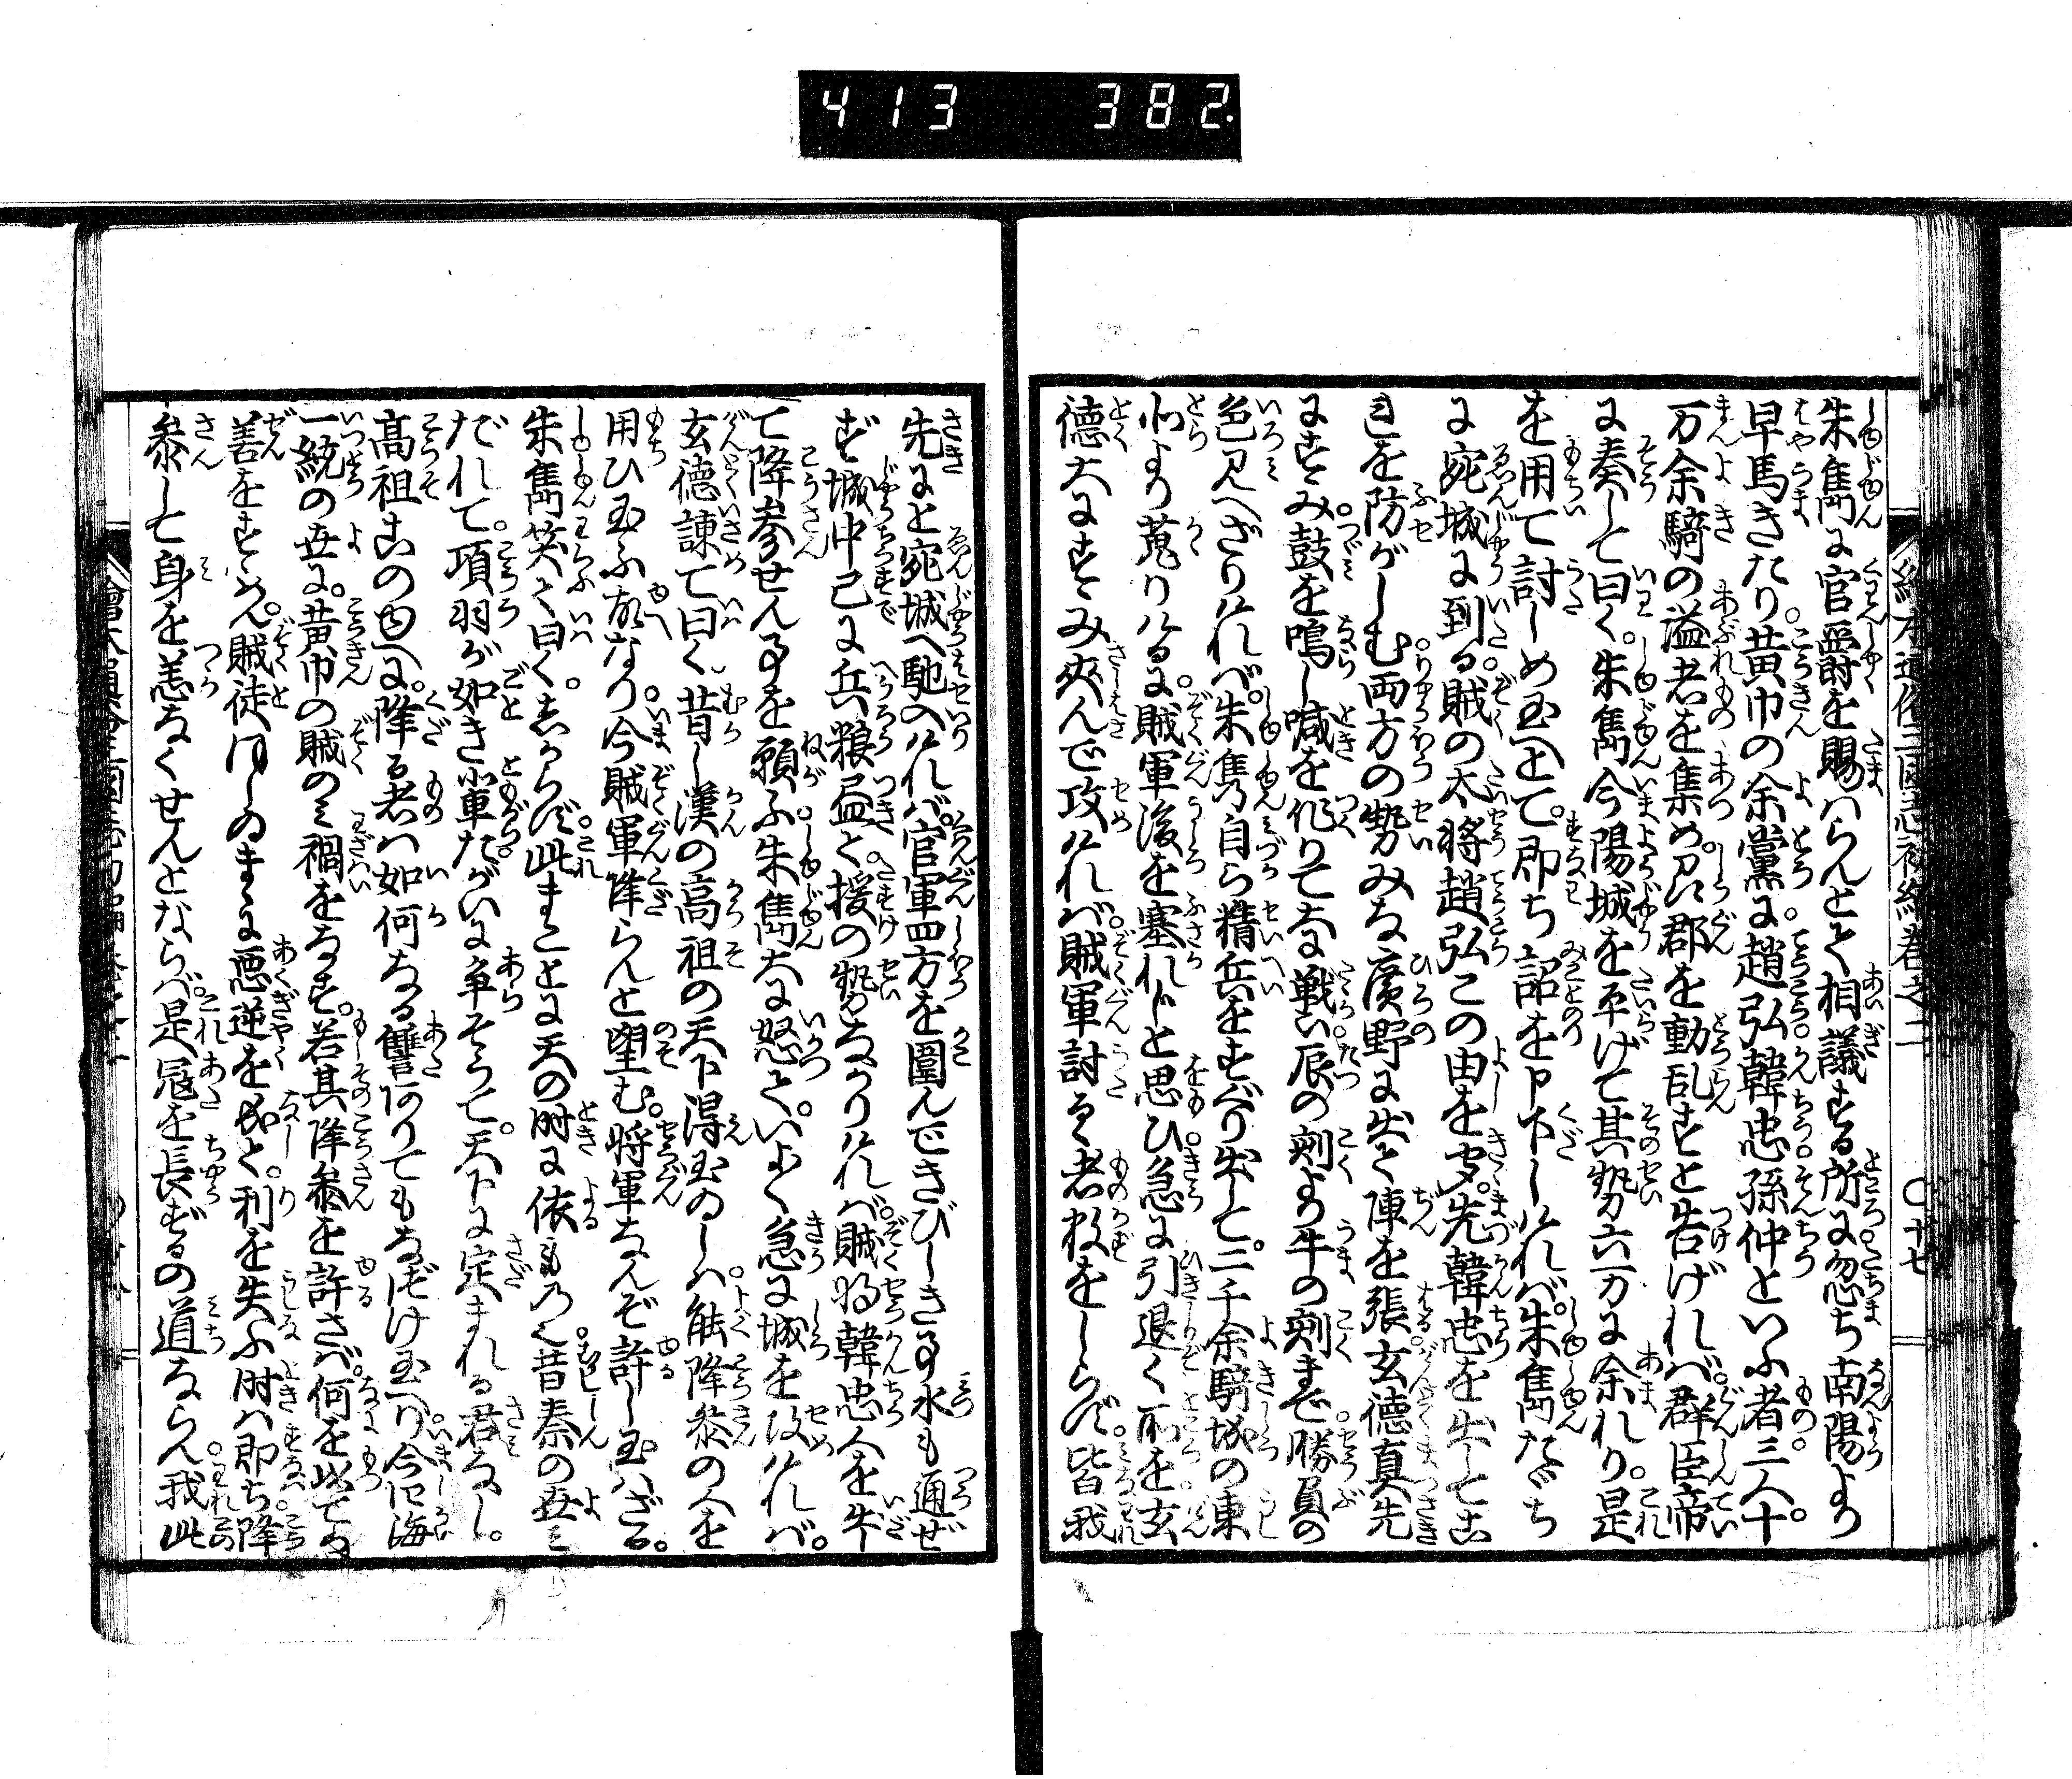 413 382.
繪本通俗三國志初編卷之二 〇十七
朱雋に官爵を賜はらんとて相議する所に忽ち南陽より
早馬きたり。黄巾の余黨に。趙弘韓忠孫仲といふ者三人十
万余騎の溢者を集め。州郡を動乱すと告げれば。群臣帝
に奏して曰く。朱雋今陽城を平げて其勢六万に余れり。是
を用て討しめ玉へとて。即ち詔を下しければ。朱雋たゞち
に宛城に到る。賊の大將趙弘この由を聞。先韓忠を出してこ
れを防がしむ。両方の勢みな廣野に出て陣を張。玄德真先
にすゝみ。鼓を鳴し喊を作りて大に戦い。辰の刻より午の刻まで勝負の
色見へざりければ。朱雋自ら精兵をすぐり出して。二千余騎城の東
北より蒐りけるに。賊軍後を塞れじと思ひ。急に引退く所を。玄
德大にすゝみ夾んで攻ければ。賊軍討るゝ者数をしらず。皆我
先にと宛城へ馳入ければ。官軍四方を圍んできびしき事水も通ぜ
ず。城中已に兵粮尽て。援の勢もなかりければ。賊將韓忠人を出し
て降参せん事を願ふ。朱雋大に怒て。いよ〱急に城を攻ければ。
玄德諫て曰く。昔し漢の高祖の天下得玉ゐしハ。能降参の人を
用ひ玉ふ故なり。今賊軍降らんと望む。將軍なんぞ許し玉ハざる。
朱雋笑て曰く。しからず。此まことに天の時に依ものぞ。昔秦の世みだれて。
項羽が如き輩たがいに争そって。天下に定まれる君なし。
高祖この内に。降る者ハ如何なる讐ありてもなづけ玉へり。今四海
一統の世に。黄巾の賊のミ禍をなす。若其降参を許さバ。何を以てか
善をすゝめん。賊徒ほしゐまゝに悪逆を成て。利を失ふ時ハ即ち降
参して身を恙なくせんとならば。是冦を長ずるの道ならん。我此